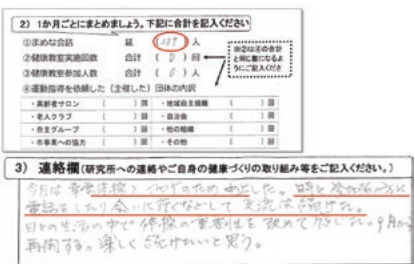 2) 1か月ごとにまとめましょう。下記に合計を記入ください
①まめな会話 延 ( 239 ) 人
②健康教室実施回数 合計 ( 0 ) 回
③健康教室参加人数 合計 ( 0 ) 人
※②は④の合計と同じ数になるようにご記入ください
④運動指導を依頼した(主催した)団体の内訳
・高齢者サロン ( ) 回 ・地域自主組織 ( ) 回
・老人クラブ ( ) 回 ・自治会 ( ) 回
・自主グループ ( ) 回 ・他の組織 ( ) 回
・市事業への協力 ( ) 回 ・その他 ( ) 回
3) 連絡欄(研究所への連絡やご自身の健康づくりの取り組み等をご記入ください。)
今月は 体操を コロナのため 中止した。
電話をしたり 会いに行くなどして 交流は続けた。
日々の生活の中で 体操の重要性を 改めて 感じた。9月から
再開する。楽しく 続けたいと思う。